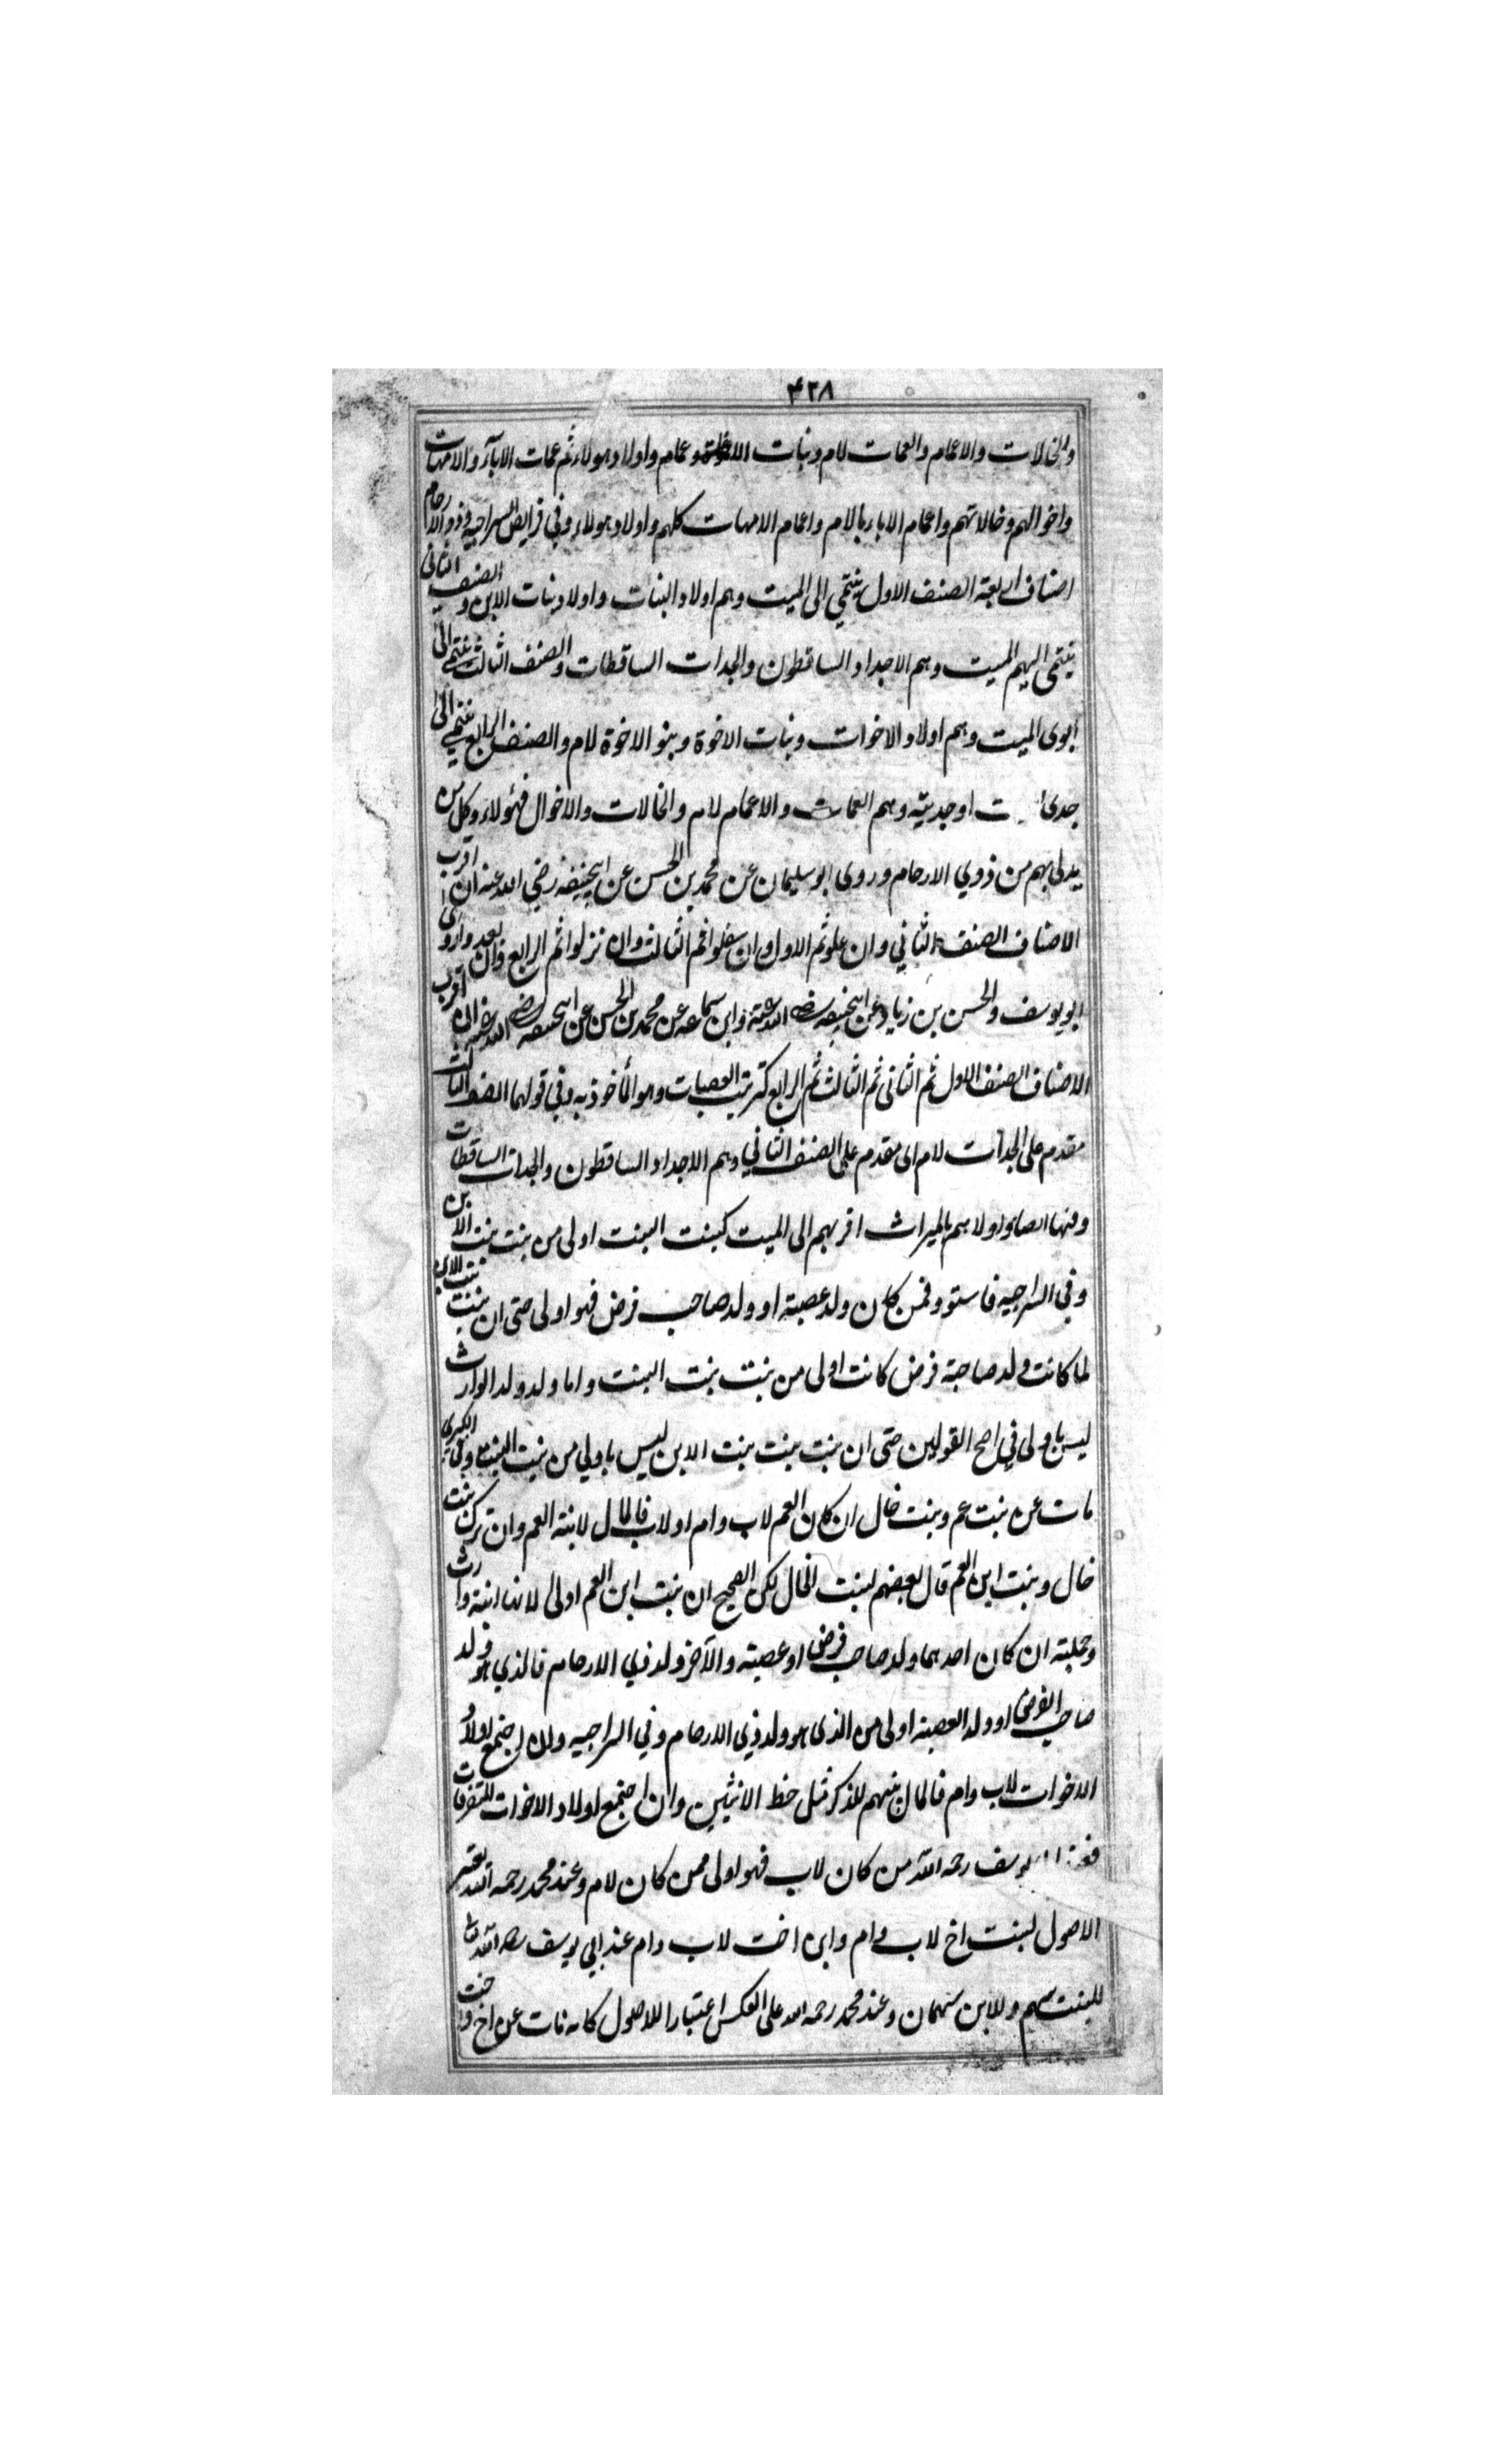 ۴۲۸
والخالات والاعمام والعمات لام وبنات الاعمام واولاد هولاء ثم عمات الاباء والامهات
واخوالهم وخالاتهم واعمام الاباء بالام واعمام الامهات كلهم واولاد هولاء وفي فرايض السراجيه ذوو الارحام
اصناف اربعة الصنف الاول ينتمي الى الميت وهم اولاد البنات واولاد بنات الابن والصنف الثاني
ينتمى اليهم الميت وهم الاجداد الساقطون والجدات الساقطات والصنف الثالث ينتمي الى
ابوى الميت وهم اولاد الاخوات وبنات الاخوة وبنو الاخوة لام والصنف الرابع ينتمي الى
جدى اوجديته وهم العمات والاعمام لام والخالات والاخوال فهؤلاء وكل من
يدلى بهم من ذوي الارحام وروى ابو سليمان عن محمد بن الحسن عن ابيحنيفه رضي الله عنه ان اقرب
الاصناف الصنف الثاني وان علو ثم الاول وان سفلوا ثم الثالث وان نزلوا ثم الرابع وان بعدوا وروى
ابو يوسف والحسن بن زياد عن ابيحنيفه رضي الله عنه وابن سماعه عن محمد بن الحسن عن ابيحنيفه رضي الله عنه ان اقرب
الاصناف الصنف الاول ثم الثانى ثم الثالث ثم الرابع كترتيب العصبات وهو المأخوذ به وفي قولهما الصنف الثالث
مقدم على الجدات لام اى مقدم على الصنف الثاني وهم الاجداد الساقطون والجدات الساقطات
وفيها اولاهم بالميراث اقربهم الى الميت كبنت البنت اولى من بنت بنت الابن
وفي السراجيه فاستوو فمن كان ولد عصبة او ولد صاحب فرض فهو اولى حتى ان بنت بنت الابن
لما كانت ولد صاحبة فرض كانت اولى من بنت بنت البنت واما ولد ولد الوارث
ليس باولى في اصح القولين حتى ان بنت بنت بنت الابن ليس باولي من بنت البنت وفي الكبرى
مات عن بنت عم وبنت خال ان كان العم لاب وام او لاب فالمال لابنة العم وان ترك بنت
خال وبنت ابن العم قال بعضهم لبنت الخال لكن الصحيح ان بنت ابن العم اولى لانها ابنة وارث
وجملته ان كان احدهما ولد صاحب فرض او عصبة والآخر ولد ذي الارحام فالذي هو ولد
صاحب الفرض او ولد العصبة اولى من الذى هو ولد ذي الارحام وفي السراجيه وان اجتمع اولاد
الاخوات لاب وام فالمال بينهم للذكر مثل حظ الانثيين وان اجتمع اولاد الاخوات المتفرقات
فعند يوسف رحمه الله من كان لاب فهو اولى ممن كان لام وعند محمد رحمه الله يعتبر
الاصول لبنت اخ لاب وام وابن اخت لاب وام عند ابي يوسف رحمه الله
للبنت سهم وللابن سهمان وعند محمد رحمه الله على العكس اعتبارا للاصول كانه مات عن اخ واخت